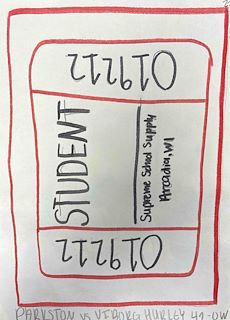 019212
STUDENT
Supreme School Supply
Arcadia, WI
019212
PARKSTON vs VIBORG HURLEY 42-0W